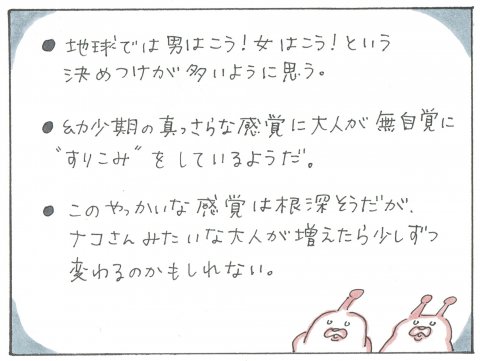 ● 地球では男はこう！女はこう！という
決めつけが多いように思う。
● 幼少期の真っさらな感覚に大人が無自覚に
"すりこみ"をしているようだ。
● このやっかいな感覚は根深そうだが、
ナコさんみたいな大人が増えたら少しずつ
変わるのかもしれない。